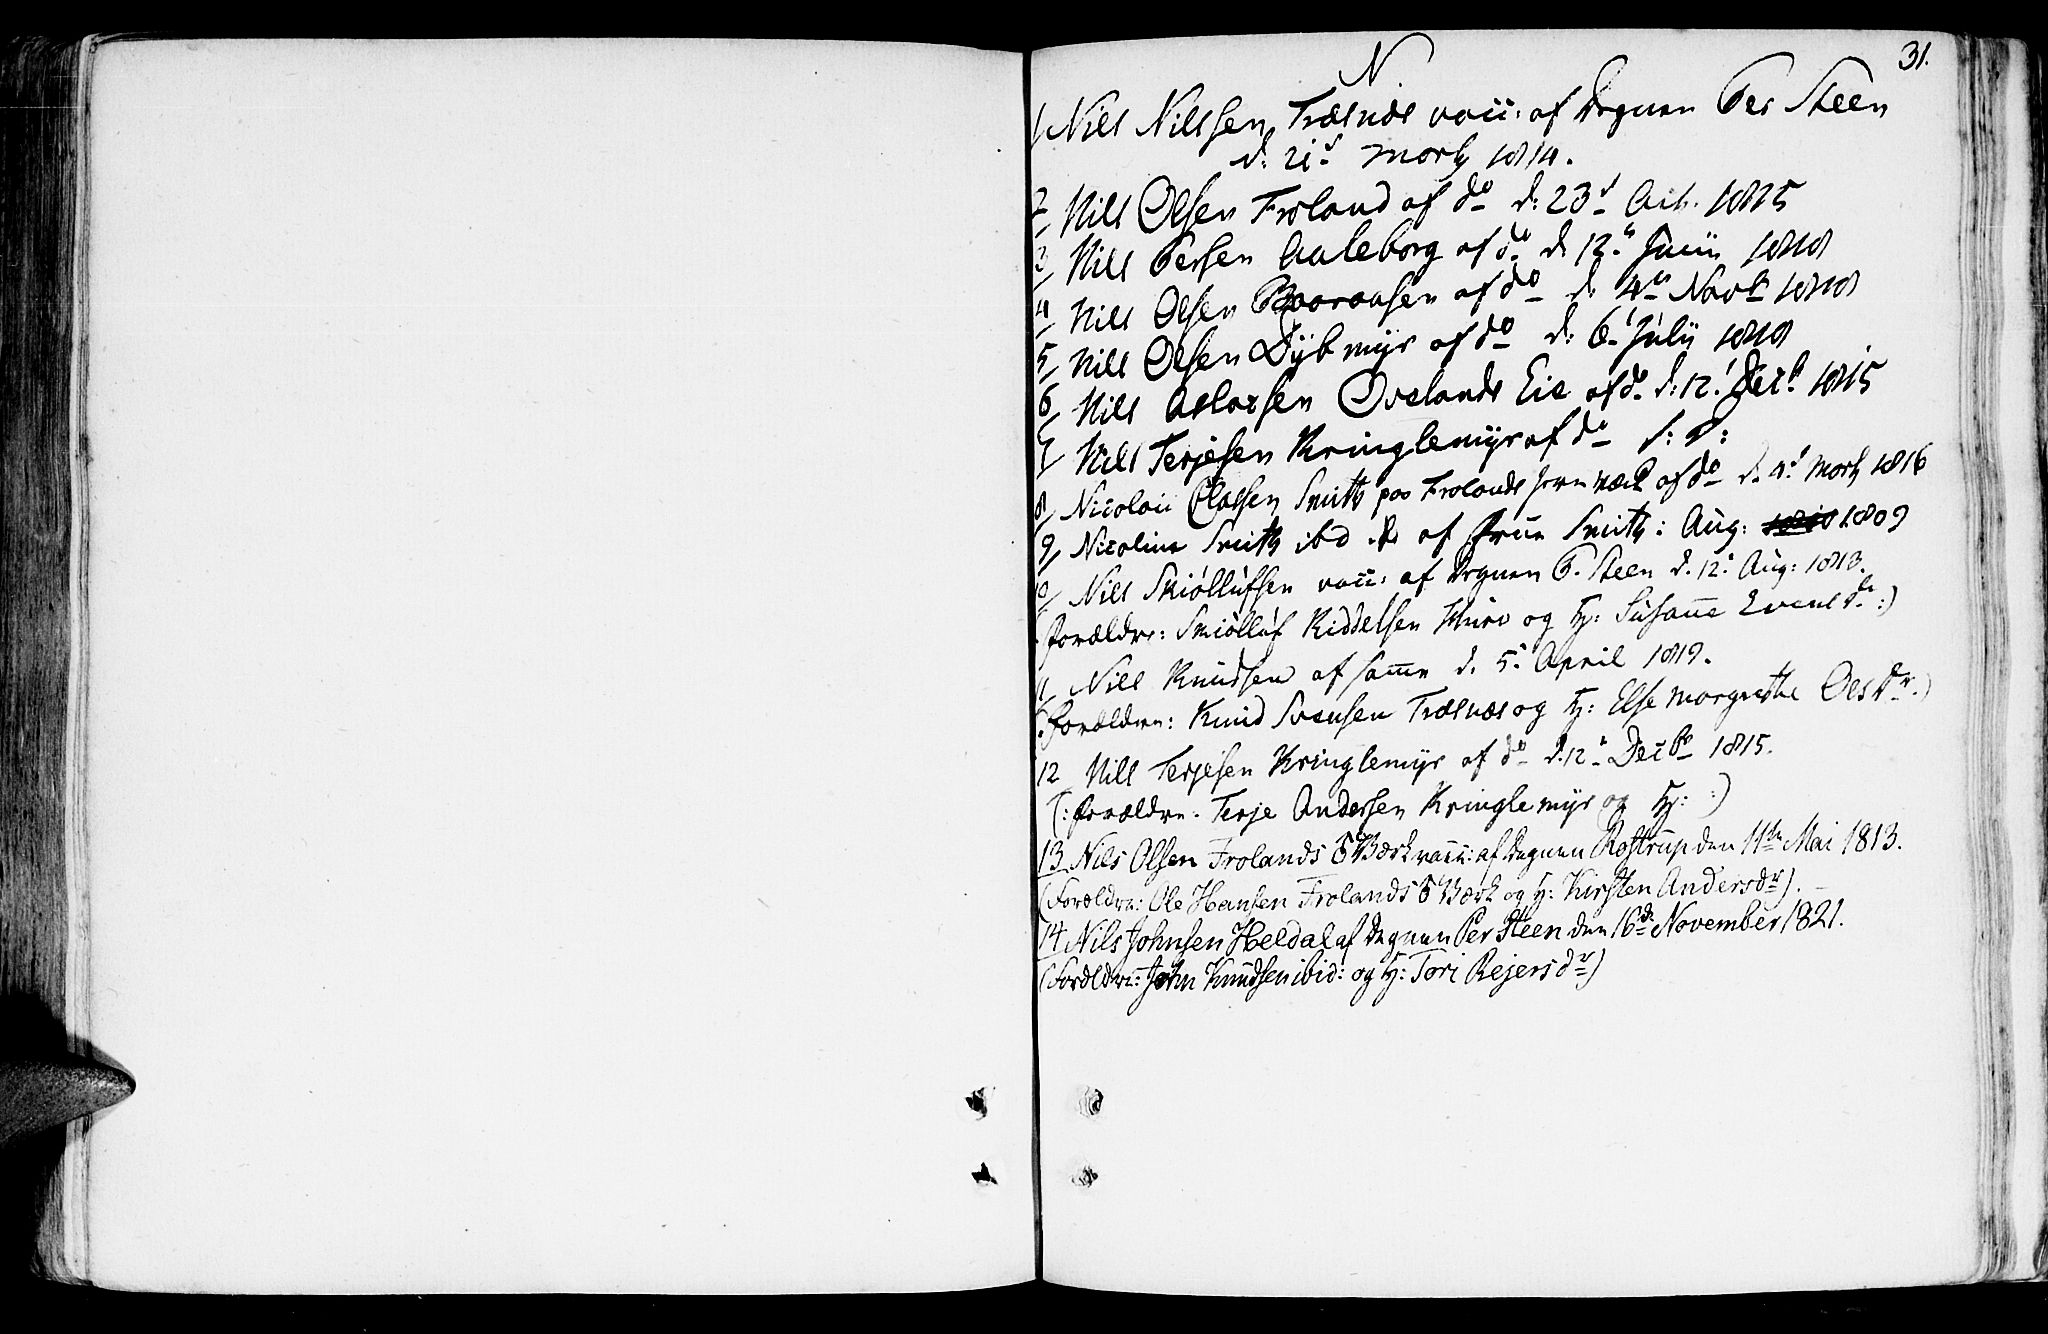 31.
N.
1/ Nils Nilssen Trælnæs vacc: af Degnen Per Steen
d: 21d Marty 1814.
2/ Nils Olsen Froland af do d: 23d Act. 1815
3/ Nils Persen Aaleborg af do d. 12te Junii 1818
4/ Nils Olsen af do d: 4de Novb 1818
5/ Nils Olsen Dybmyr af do d: 6t July 1818
6/ Nils Aslaksen Øvelands Eie af do d: 12t Decb 1815
7/ Nils Terjesen Kringlemyr af do d: d:
8/ Nicolai Classen Smith paa Frolands Jernværk af do d. 4d Marty 1816
9/ Nicoline Smith ibd af Fruе Smith: Aug: 1809
10/ Nils Skiøllufsen vacc: af Degnen P. Steen d. 12t Aug: 1813.
(Forældre: Skiølluf Kiddelsen og H: Susanne Evensdr:)
11/ Nils Knudsen af samme d. 5t April 1819.
(:Forældre: Knud Svensen Trælnæs og H: Else Margrethe Olsdr.)
12 Nils Terjesen Kringlemyr af do d. 12t Decbr 1815.
(:Forældre. Terje Andersen Kringlemyr og H: :)
13 Nils Olsen Frolands Værk vacc: af Degnen Rostrup den 11te Mai 1813.
(Forældre: Ole Hansen Frolands Værk og H: Kirsten Andersdr).
14 Nils Johnsen Heldal af Degnen Per Steen den 16de November 1821.
(Forældre: John Knudsen ibid: og H: Tori Rejersdr)